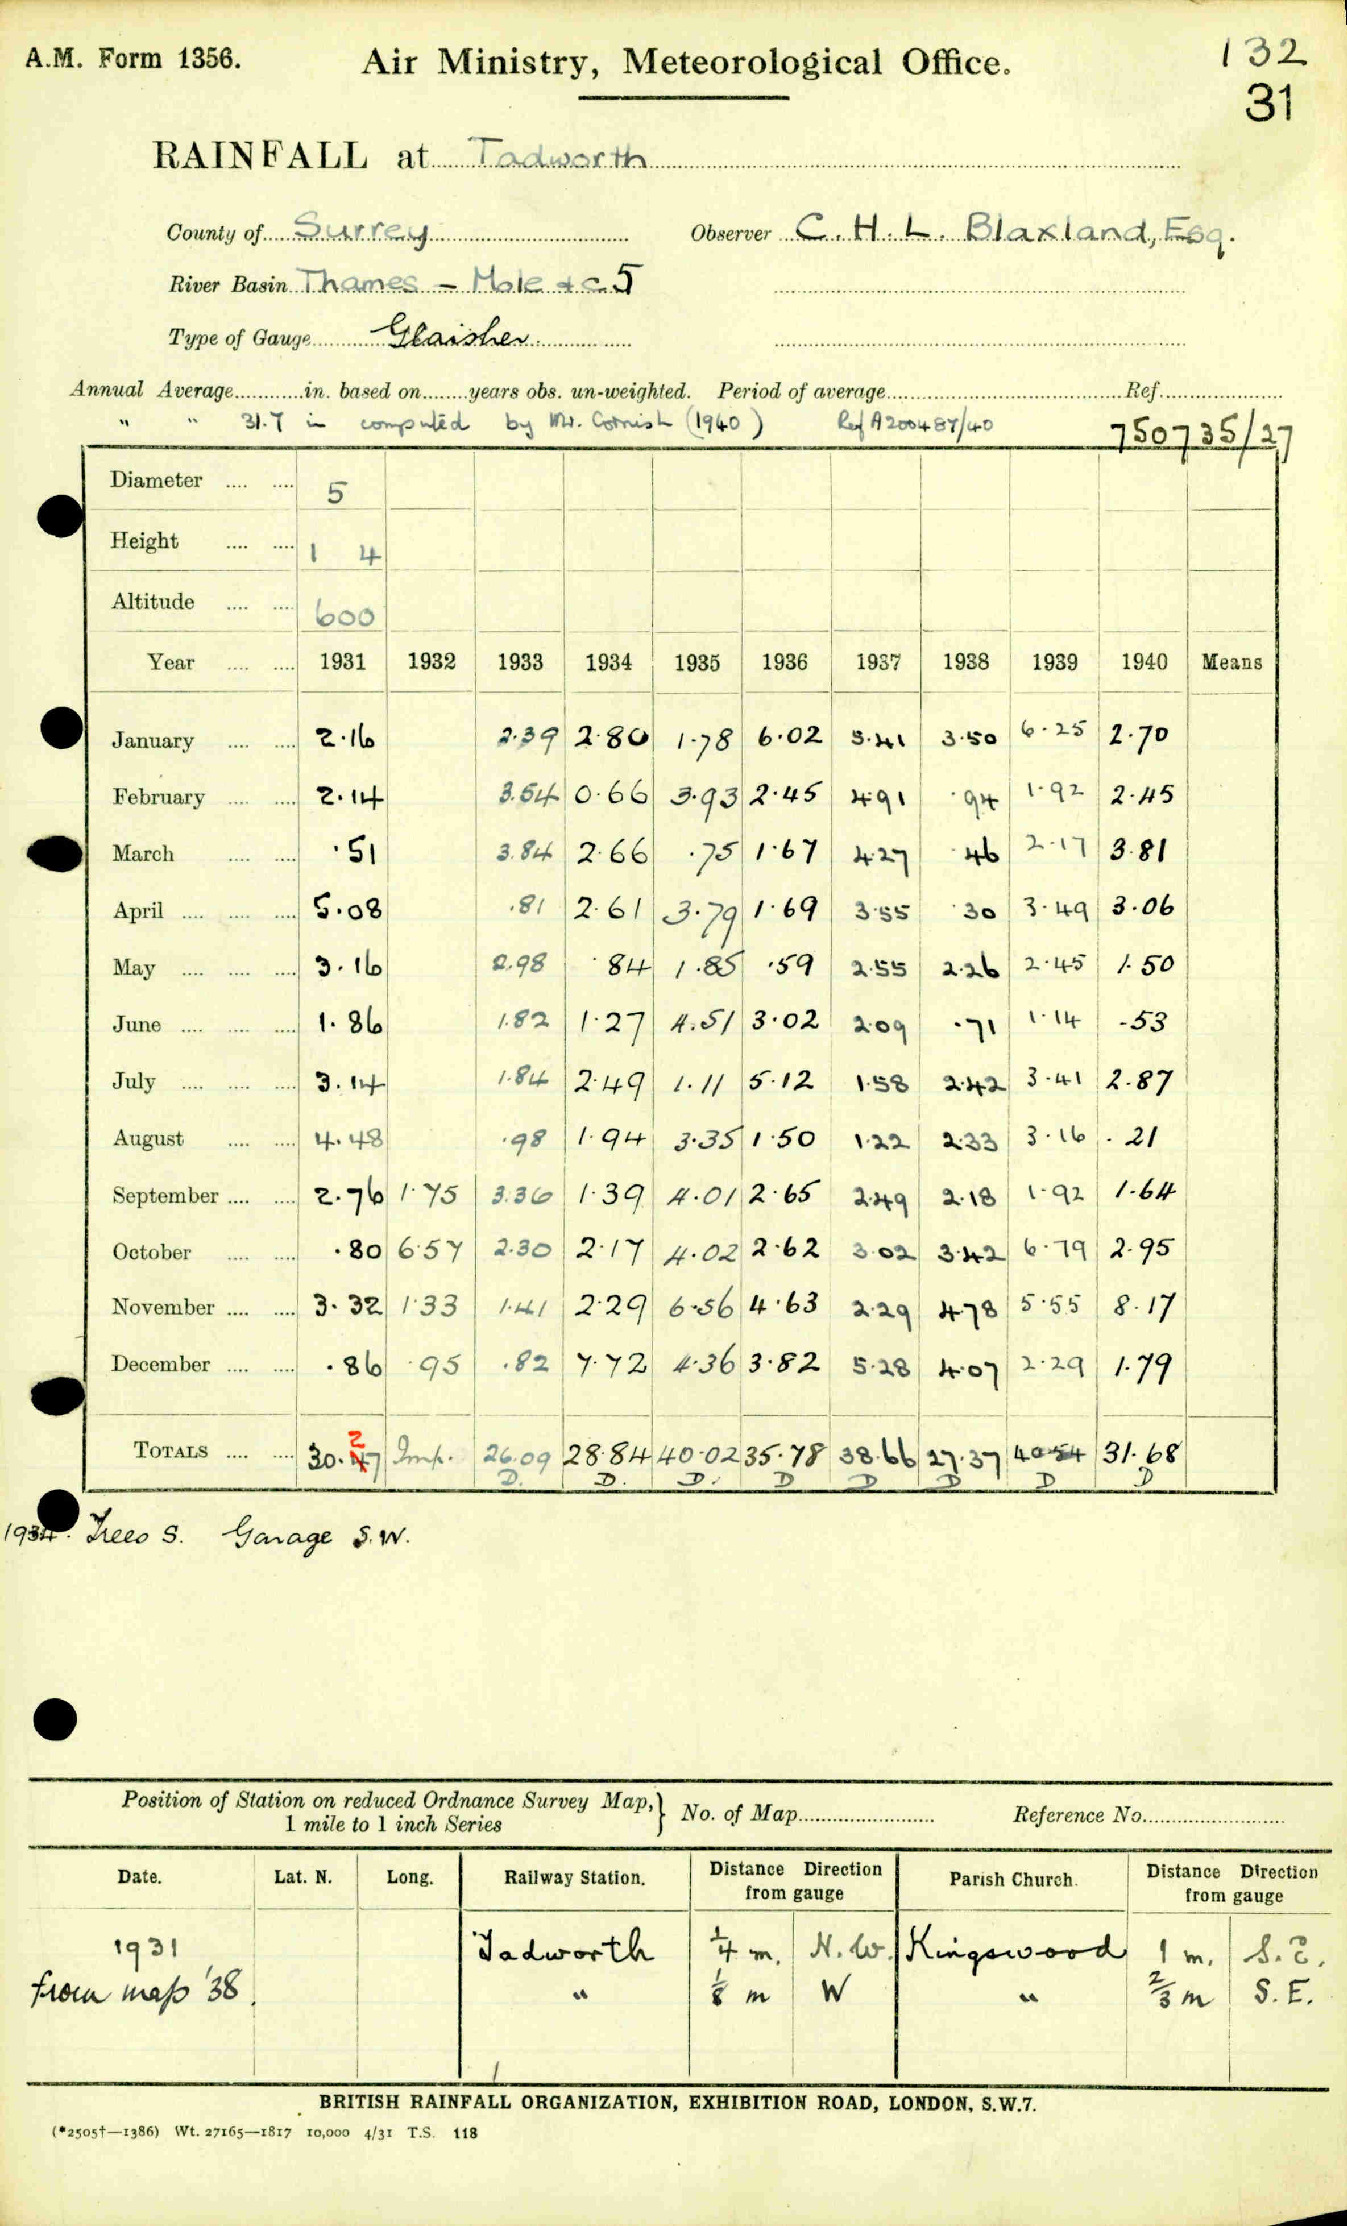 A.M. Form 1356.
Air Ministry, Meteorological Office.
132
31
RAINFALL at Tadworth
County of Surrey Observer C. H. L. Blaxland, Esq.
River Basin Thames – Mole &c. 5
Type of Gauge Glaisher
Annual Average in. based on years obs. un-weighted. Period of average Ref.
" " 31.7 in computed by Mr. Cornish (1940) Ref A200487/40
750735/27
Diameter 5
Height 1 4
Altitude 600
Year 1931 1932 1933 1934 1935 1936 1937 1938 1939 1940 Means
January 2.16 2.39 2.80 1.78 6.02 5.41 3.50 6.25 2.70
February 2.14 3.54 0.66 3.93 2.45 4.91 .94 1.92 2.45
March .51 3.84 2.66 .75 1.67 4.27 .46 2.17 3.81
April 5.08 .81 2.61 3.79 1.69 3.55 .30 3.49 3.06
May 3.16 2.98 .84 1.85 .59 2.55 2.26 2.45 1.50
June 1.86 1.82 1.27 4.51 3.02 2.09 .71 1.14 .53
July 3.14 1.84 2.49 1.11 5.12 1.58 2.42 3.41 2.87
August 4.48 .98 1.94 3.35 1.50 1.22 2.33 3.16 .21
September 2.76 1.75 3.36 1.39 4.01 2.65 2.49 2.18 1.92 1.64
October .80 6.57 2.30 2.17 4.02 2.62 3.02 3.42 6.79 2.95
November 3.32 1.33 1.41 2.29 6.56 4.63 2.29 4.78 5.55 8.17
December .86 .95 .82 7.72 4.36 3.82 5.28 4.07 2.29 1.79
2
TOTALS 30.47 Imp. 26.09 28.84 40.02 35.78 38.66 27.37 40.54 31.68
D. D. D. D D D D D
1934. Trees S. Garage S.W.
Position of Station on reduced Ordnance Survey Map,} No. of Map Reference No.
1 mile to 1 inch Series
Date. Lat. N. Long. Railway Station. Distance Direction from gauge Parish Church. Distance Direction from gauge
1931 Tadworth 1/4 m. N.W. Kingswood 1 m. S.E.
from map '38. " 1/8 m W " 2/3 m S.E.
BRITISH RAINFALL ORGANIZATION, EXHIBITION ROAD, LONDON, S.W.7.
(*2505†—1386) Wt. 27165—1817 10,000 4/31 T.S. 118